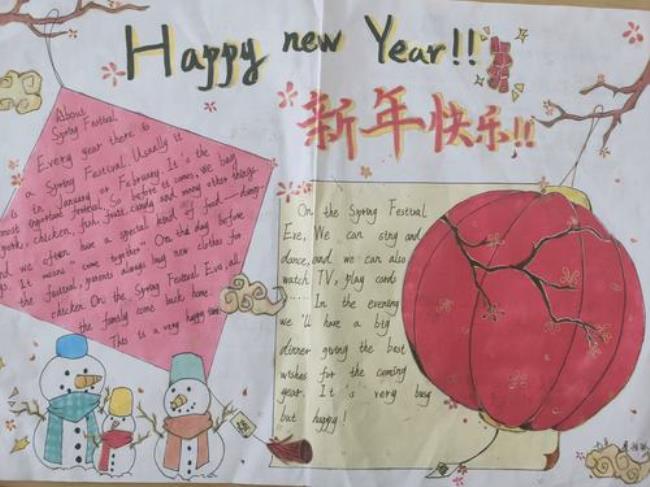 Happy new Year!!
新年快乐!!
About
Spring Festival
Every year there is
a Spring Festival. Usually it
is in January or February. It's the
most important festival. So before it comes, we buy
pork, chicken, fish, fruit, candy and many other things
And we often have a special kind of food—dump-
It means "come together" On the day before
the festival, parents always buy new clothes for
chicken On the Spring Festival Eve, all
the family come back home.
This is a very happy time
On the Spring Festival
Eve, We can sing and
dance, and we can also
watch TV, play cards
...... In the evening
we'll have a big
dinner giving the best
wishes for the coming
year. It's very busy
but happy!